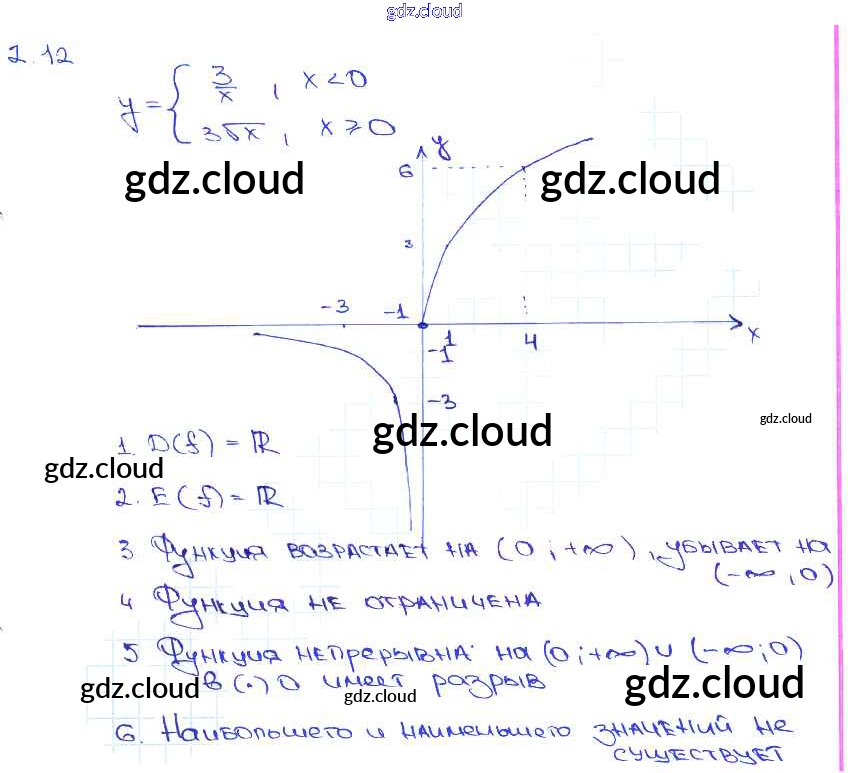 gdz.cloud
2.12
y = { 3/x , x < 0
3√x , x ⩾ 0
y
gdz.cloud gdz.cloud
6
3
-3 -1
1 4 x
-1
-3
gdz.cloud
gdz.cloud
1. D(f) = ℝ
gdz.cloud
2. E(f) = ℝ
3 Функция возрастает на (0; +∞), убывает на
(-∞, 0)
4 Функция не ограничена
5 Функция непрерывна на (0; +∞) ∪ (-∞; 0)
в (·) 0 имеет разрыв
gdz.cloud gdz.cloud gdz.cloud
6. Наибольшего и наименьшего значений не
существует